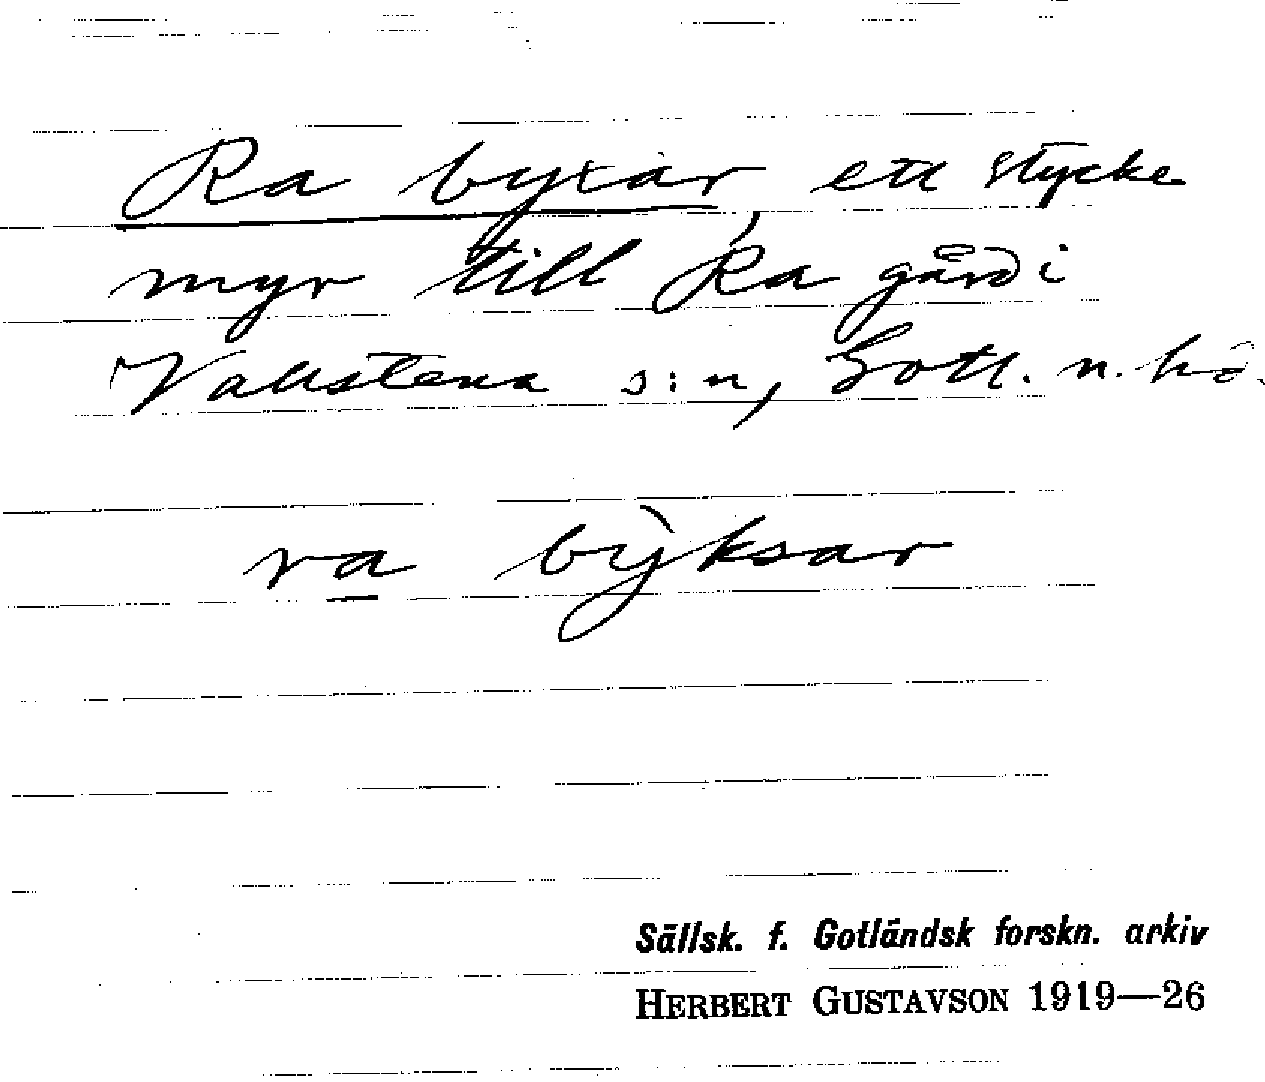 Ra byxar, ett stycke
myr till Ra gård i
Vallstena s:n, Gotl. n. hd.
ra bỳksar
Sällsk. f. Gotländsk forskn. arkiv
HERBERT GUSTAVSON 1919—26